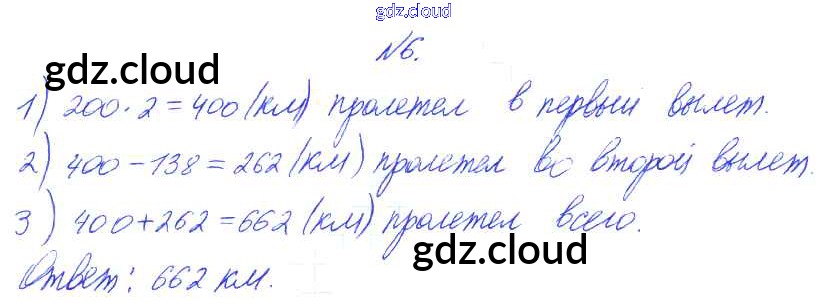 gdz.cloud
№6.
gdz.cloud
1) 200·2=400(км) пролетел в первый вылет.
2) 400-138=262(км) пролетел во второй вылет.
3) 400+262=662(км) пролетел всего.
gdz.cloud
Ответ: 662 км.